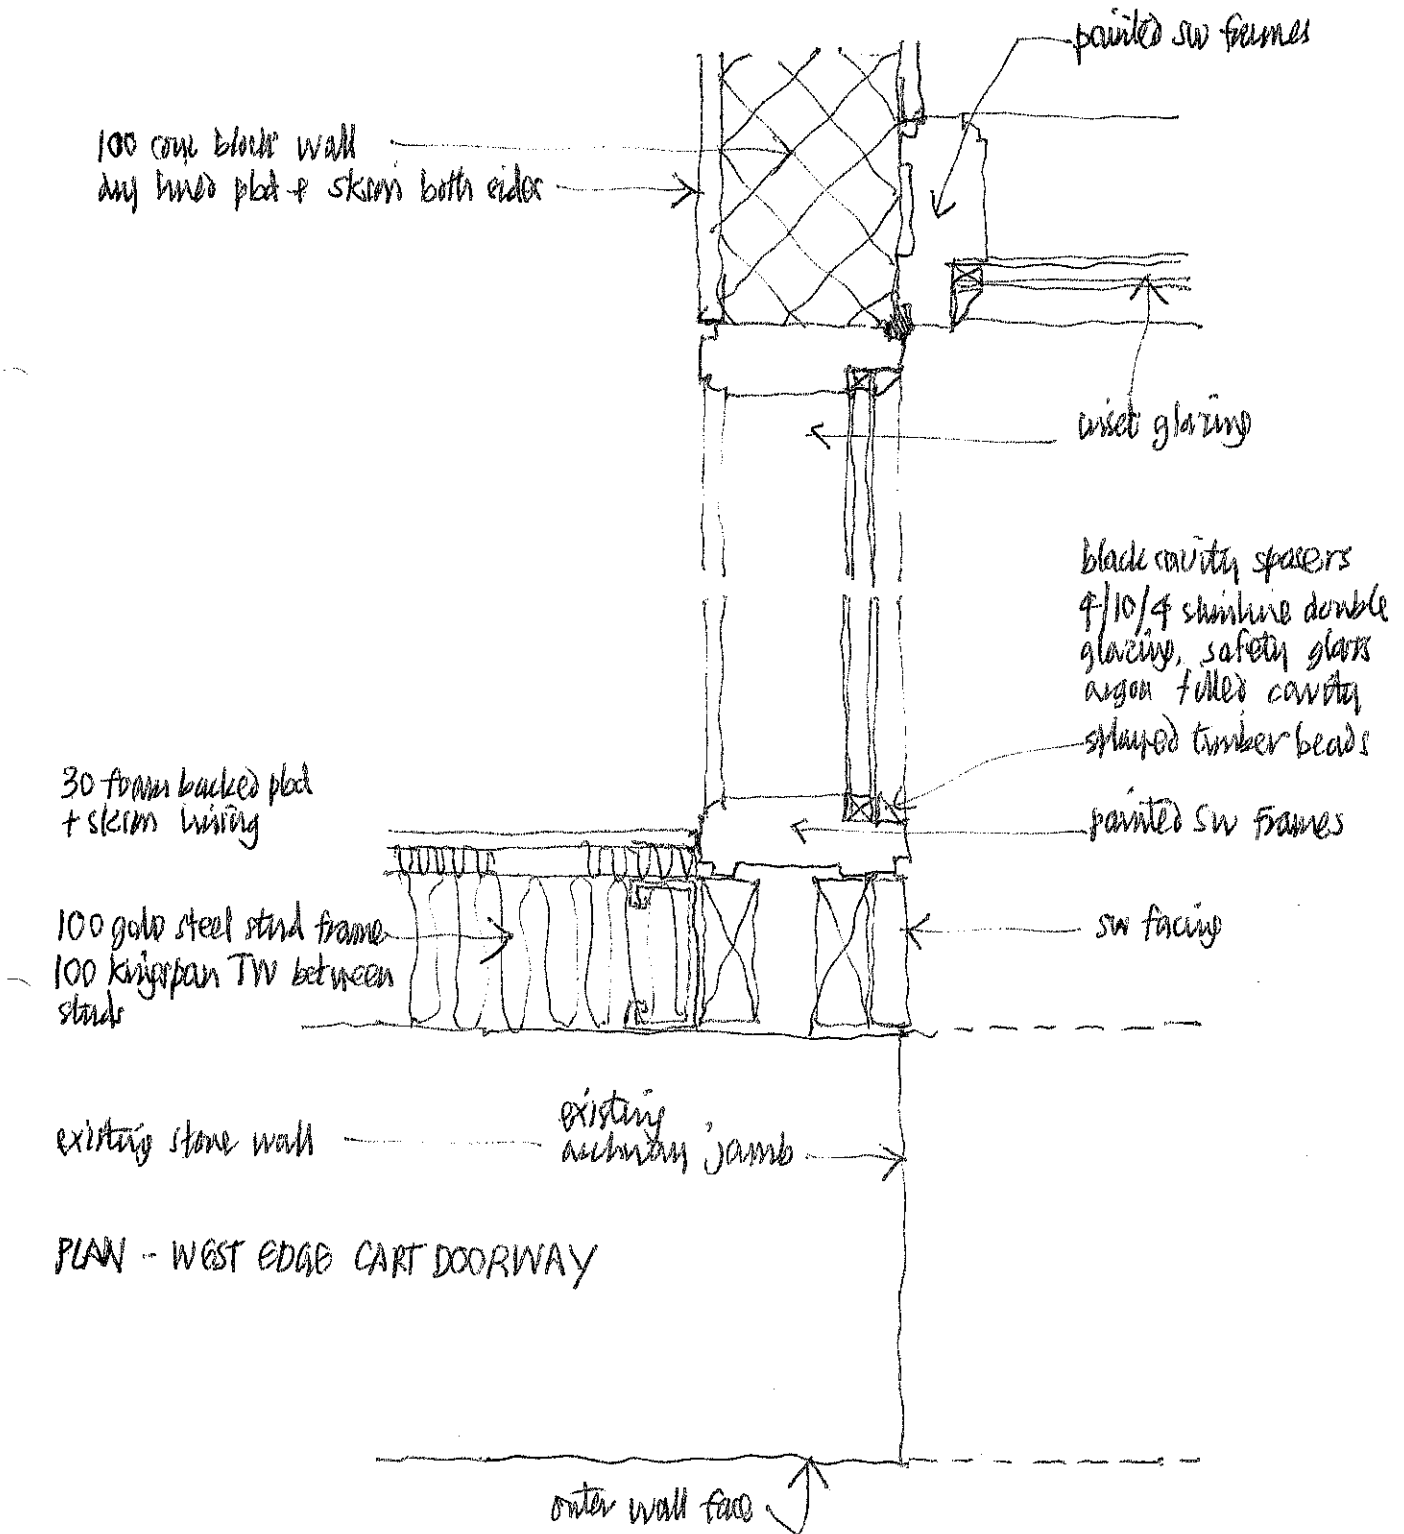 painted sw frames
100 conc block wall
dry lined pbd + skim both sides
inset glazing
black cavity spacers
4/10/4 slimline double
glazing, safety glass
argon filled cavity
splayed timber beads
30 foam backed pbd
+ skim lining
painted SW frames
100 galv steel stud frame
100 kingspan TW between
studs
sw facing
existing stone wall
existing
archway jamb
PLAN - WEST EDGE CART DOORWAY
outer wall face